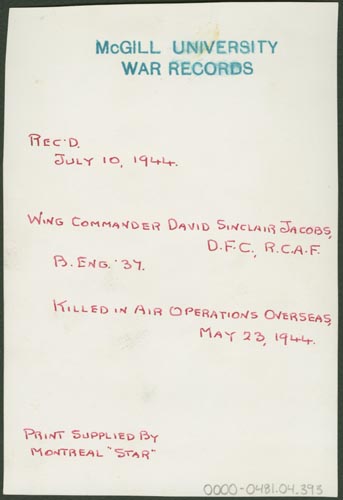 McGILL UNIVERSITY
WAR RECORDS
REC'D.
JULY 10, 1944.
WING COMMANDER DAVID SINCLAIR JACOBS,
D.F.C., R.C.A.F.
B. ENG. '37.
KILLED IN AIR OPERATIONS OVERSEAS,
MAY 23, 1944.
PRINT SUPPLIED BY
MONTREAL "STAR"
0000-0481.04.393